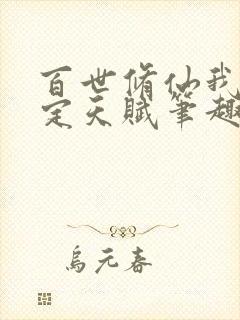 百世脩仙我
定天賦筆趣
烏元春